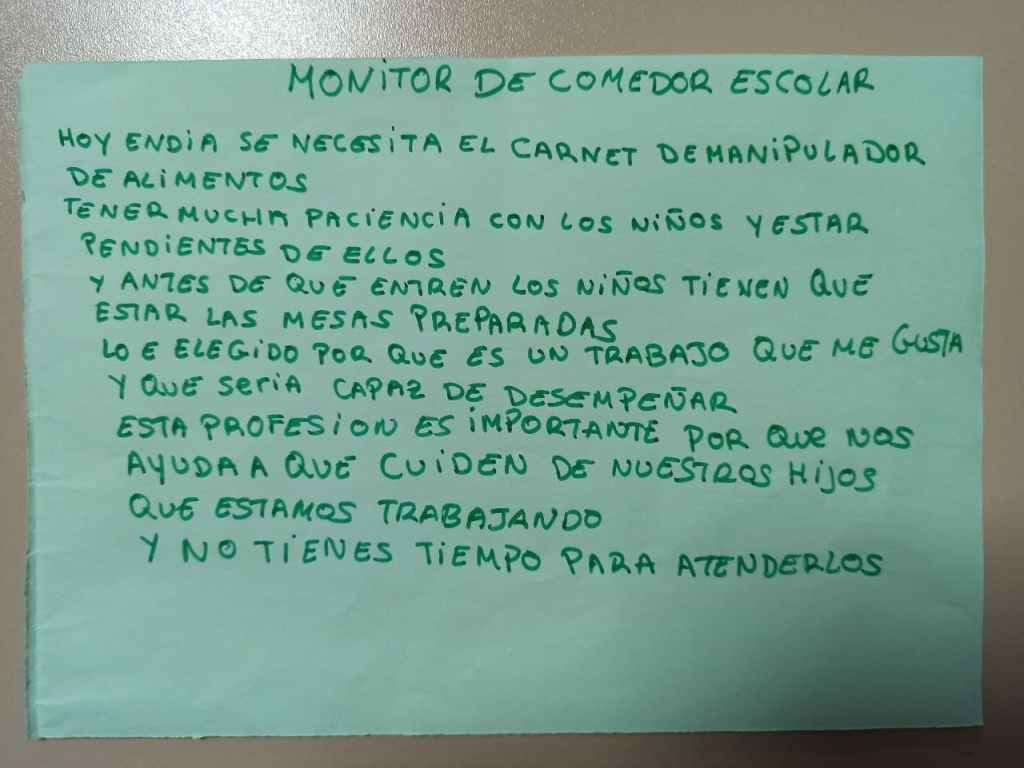 MONITOR DE COMEDOR ESCOLAR
HOY ENDIA SE NECESITA EL CARNET DE MANIPULADOR
DE ALIMENTOS
TENER MUCHA PACIENCIA CON LOS NIÑOS Y ESTAR
PENDIENTES DE ELLOS
Y ANTES DE QUE ENTREN LOS NIÑOS TIENEN QUE
ESTAR LAS MESAS PREPARADAS
LO E ELEGIDO POR QUE ES UN TRABAJO QUE ME GUSTA
Y QUE SERIA CAPAZ DE DESEMPEÑAR
ESTA PROFESION ES IMPORTANTE POR QUE NOS
AYUDA A QUE CUIDEN DE NUESTROS HIJOS
QUE ESTAMOS TRABAJANDO
Y NO TIENES TIEMPO PARA ATENDERLOS